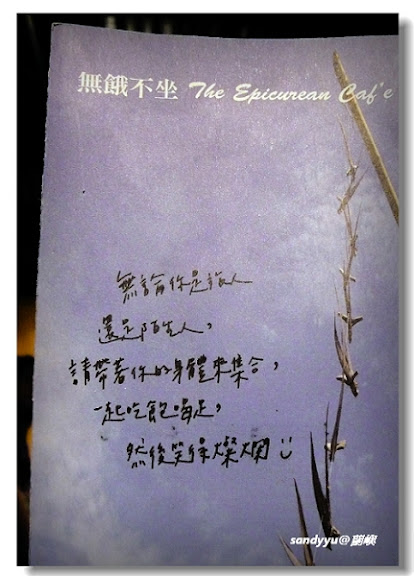 無餓不坐 The Epicurean Caf'e
無論你是旅人
還是陌生人，
請帶著你的身體來集合，
一起吃飽喝足，
然後笑得燦爛
sandyyu@蘭嶼